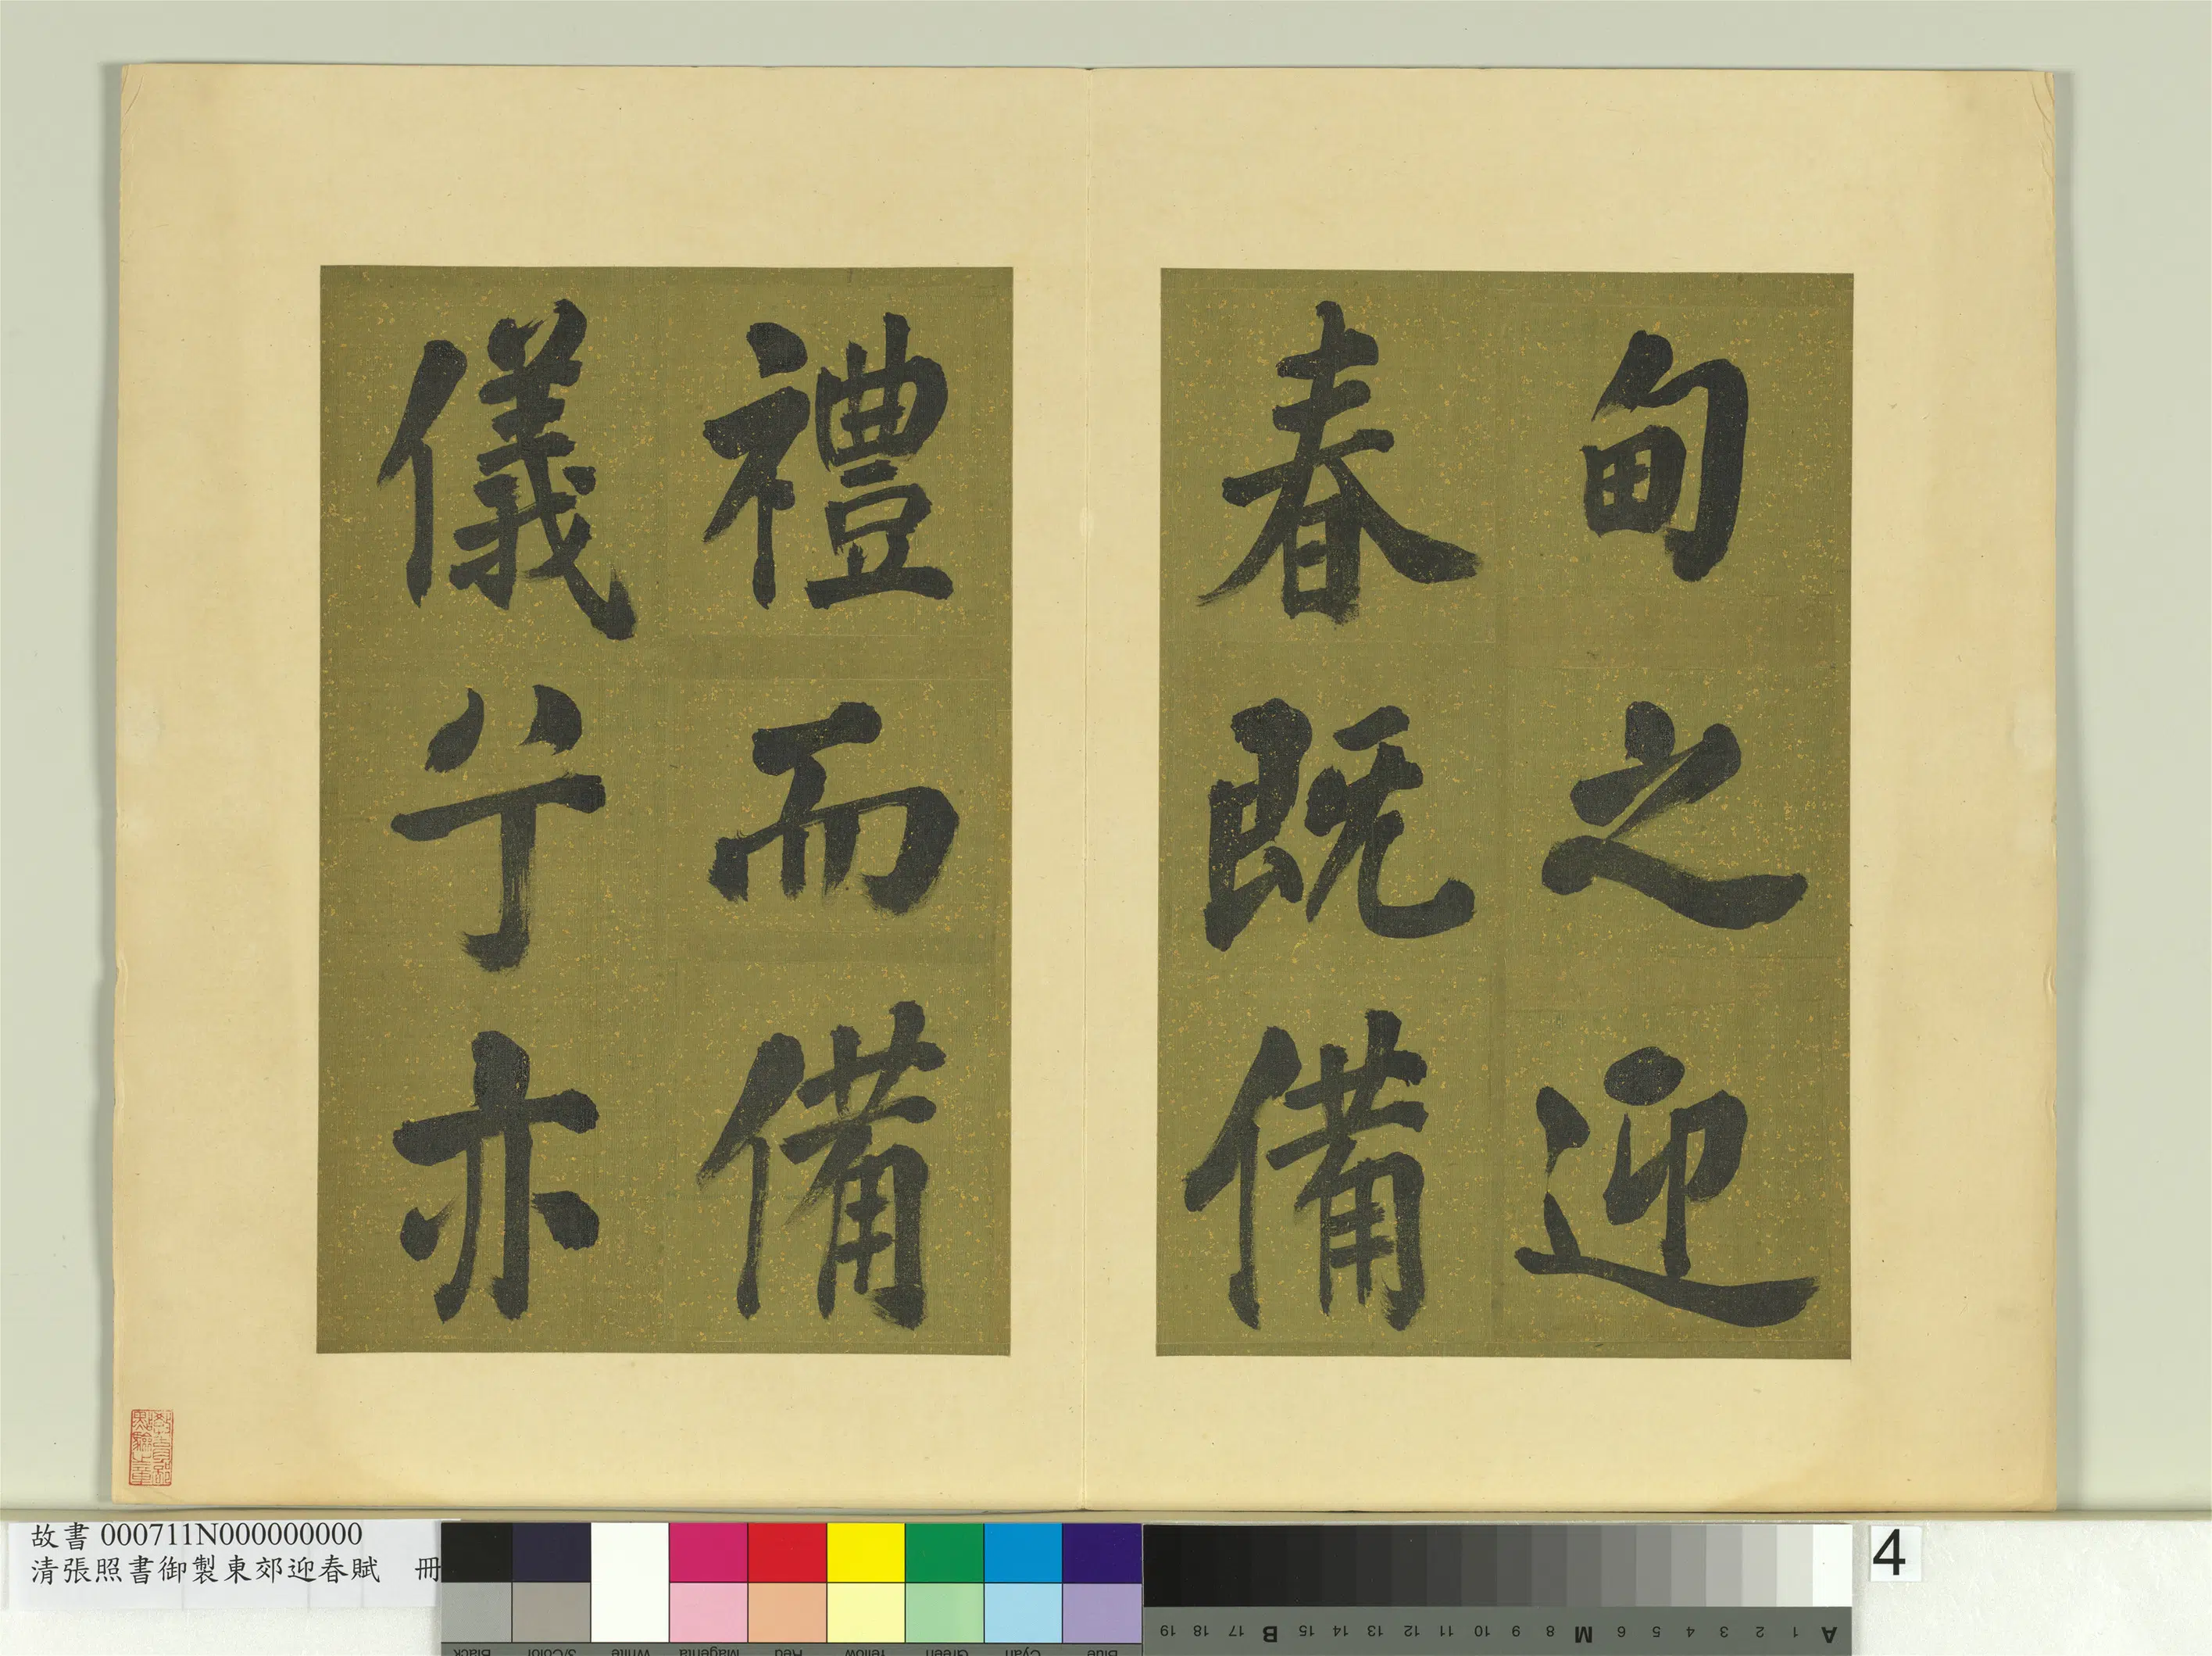 甸之迎
春既備
禮而備
儀兮亦
教育部
點驗之章
故書 000711N000000000
清張照書御製東郊迎春賦 冊
Black 3/Color White Magenta Red Yellow Green Cyan Blue
A 1 2 3 4 5 6 M 8 9 10 11 12 13 14 15 B 17 18 19
4